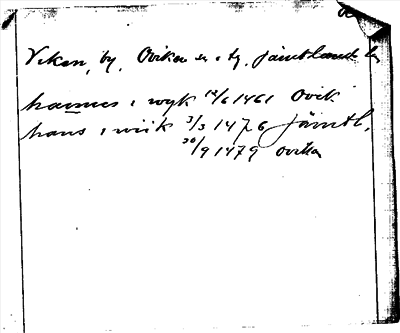 Viken, by, Ovika sn. o. tg. Jämtlands l.
hannes i wyk 12/6 1461 Ovik
hans i wiik 3/3 1476 Jämtl.
30/9 1479 Ovika